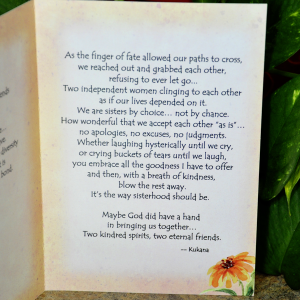 As the finger of fate allowed our paths to cross,
we reached out and grabbed each other,
refusing to ever let go...
Two independent women clinging to each other
as if our lives depended on it.
We are sisters by choice... not by chance.
How wonderful that we accept each other "as is"...
no apologies, no excuses, no judgments.
Whether laughing hysterically until we cry,
or crying buckets of tears until we laugh,
you embrace all the goodness I have to offer
and then, with a breath of kindness,
blow the rest away.
It's the way sisterhood should be.
Maybe God did have a hand
in bringing us together...
Two kindred spirits, two eternal friends.
— Kukana